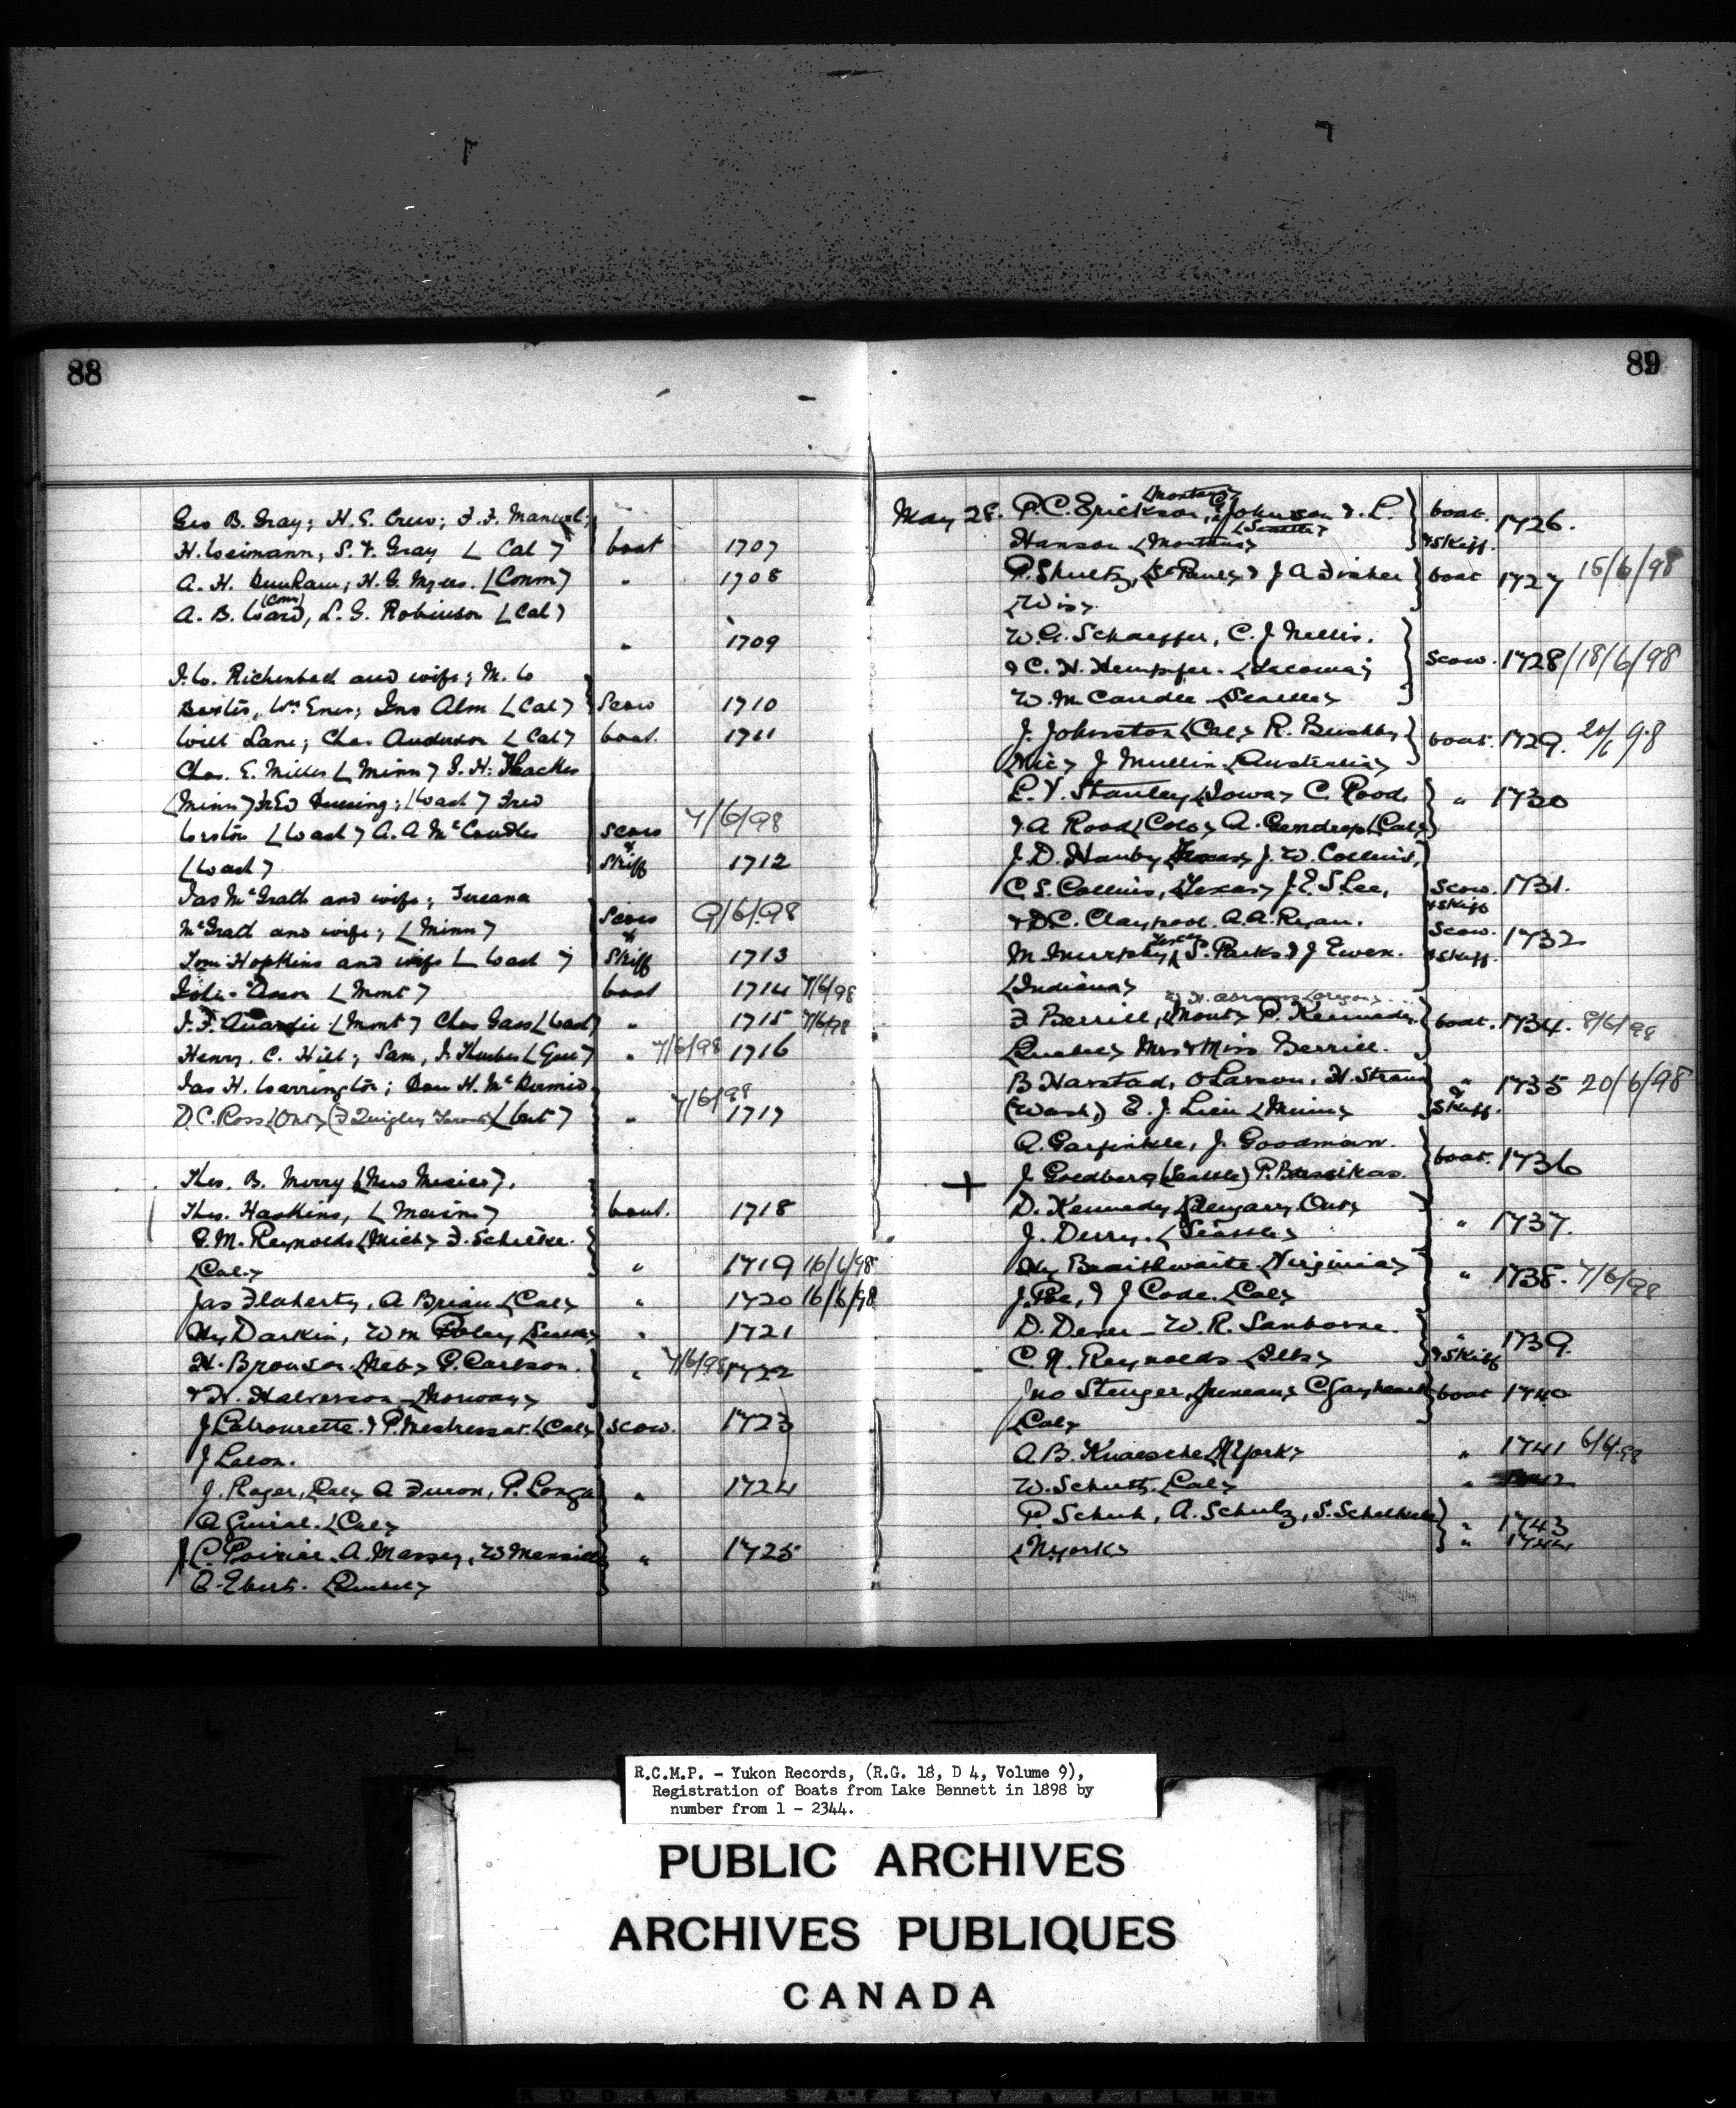 88
Geo B. Gray; H. E. Crew; F. F. Manuel;
H. Weimann, S. F. Gray (Cal) boat 1707
A. H. Dunham; H. G. Myers. (Conn) " 1708
(Conn)
A. B. Ward, L. G. Robinson (Cal)
" 1709
J. W. Richenbach and wife; M. W
Baxter, Wm Enes; Jno Alm (Cal) Scow 1710
Will Lane; Chas Anderson (Cal) boat. 1711
Chas. E. Miller (Minn) J. H. Thacker
(Minn) Fred Duesing; (Wash) Fred
Weston (Wash) A. A. McCandles Scow 7/6/98
(Wash) & Skiff 1712
Jas McGrath and wife;
McGrath and wife; (Minn) Scow 9/6/98
Tom Hopkins and wife (Wash) & Skiff 1713
(Mont) boat 1714 7/6/98
J. F. (Mont) Chas Gass (Wash) " 1715 7/6/98
Henry. C. Hill; Sam, J. " 7/6/98 1716
Jas H. Warrington; Dan H. McDermid 7/6/98
D. C. Ross (Ont) (F Quigley Toronto) (Ont) " 1717
Thos. B. Merry (New Mexico),
Thos. Haskins, (Maine) boat. 1718
E. M. Reynolds (Mich) F. Schetke.
(Cal) " 1719 16/6/98
Jas Flaherty, A Brian (Cal) " 1720 16/6/98
Hy Darkin, Wm Foley (Seattle) " 1721
H. Bronson (Neb) G. Carlson. " 7/6/98 1722
& H. Halverson (Norway)
J Latrourette. & P. Mestressat. (Cal) scow. 1723
J Lacon.
J. Roger, (Cal) A Furon, P. Longa " 1724
A Guiral. (Cal)
J. C. Poirier. A. Massey, W " 1725
A. Ebert. (Quebec)
89
(Montana)
May 28. P. C. Erickson, Johnson & L. boat. 1726.
(Seattle)
Hanson (Montana) & Skiff.
P. Shultz, (St Paul) & J A Fisher boat 1727 15/6/98
(Wis)
W. G. Schaeffer, C. J. Nellis.
& C. H. Hempfer. (Tacoma) Scow. 1728 18/6/98
W. McCandle (Seattle)
J. Johnston (Cal) R. Bushby boat. 1729. 20/6/98
(Vic) J Mullin (Australia)
L. V. Stanley (Iowa) C. Rood, " 1730
& A Rood (Colo) A. Gendrop (Cal)
J. D. Hanby (Texas) J. W. Collins,
C. S. Collins, (Texas) J. E. S Lee, Scow. 1731.
& Skiff
& D. C. Claypool A. A. Ryan. Scow. 1732
M. Murphy (Texas) S. Parks & J Ewen. & Skiff.
(Indiana)
W. H. Abrams (Oregon)
F Berrill, (Mont) P. Kennedy, boat. 1734. 8/6/98
(Quebec) Mrs & Miss Berrill.
B Harstad, O Larson, H. Strand " 1735 20/6/98
(Wash,) E. J. Lien (Minn) & Skiff.
A. Garfinkle, J. Goodman.
J Goldberg (Seattle) P. boat. 1736
D. Kennedy (Glengarry Ont)
J. Derry. (Seattle) " 1737.
Hy Braithwaite (Virginia)
J. Poe, & J Code. (Cal) " 1738. 7/6/98
D. Dever - W. R. Sanborne.
C. N. Reynolds (Ills) " & Skiff 1739.
Jno Stenger (Juneau) C. Gayheart boat 1740
(Cal)
A. B. Knaesche (N York) " 1741 6/6/98
W. Schutt. (Cal) " 1742
P. Schuh, A. Schulz, S. " 1743
(N. York) " 1744
R.C.M.P. - Yukon Records, (R.G. 18, D 4, Volume 9),
Registration of Boats from Lake Bennett in 1898 by
number from 1 - 2344.
PUBLIC ARCHIVES
ARCHIVES PUBLIQUES
CANADA
KODAK SAFETY FILM